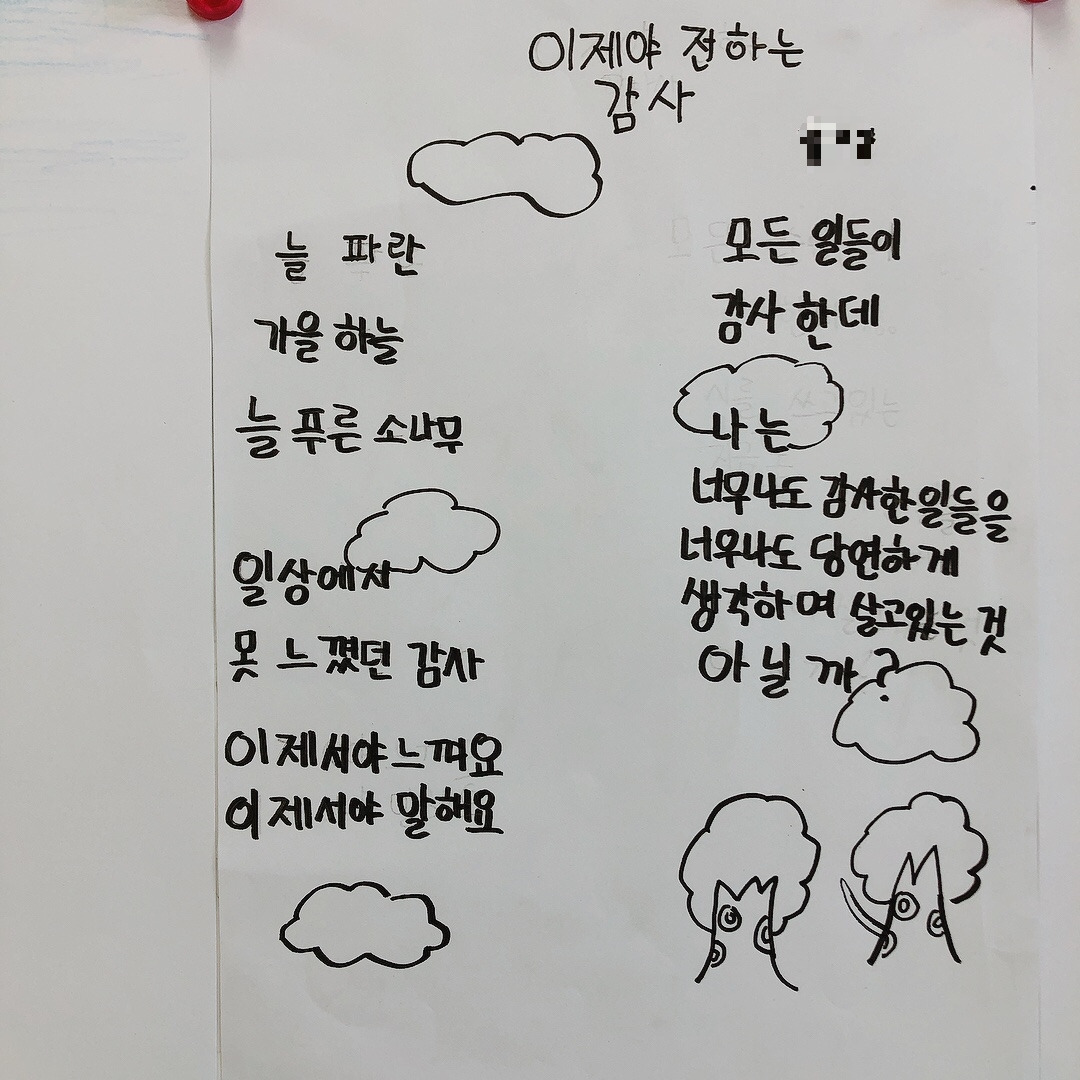 이제야 전하는
감사
늘 파란
가을 하늘
늘 푸른 소나무
일상에서
못 느꼈던 감사
이제서야 느껴요
이제서야 말해요
모든 일들이
감사 한데
나는
너무나도 감사한 일들을
너무나도 당연하게
생각하며 살고있는 것
아닐까?